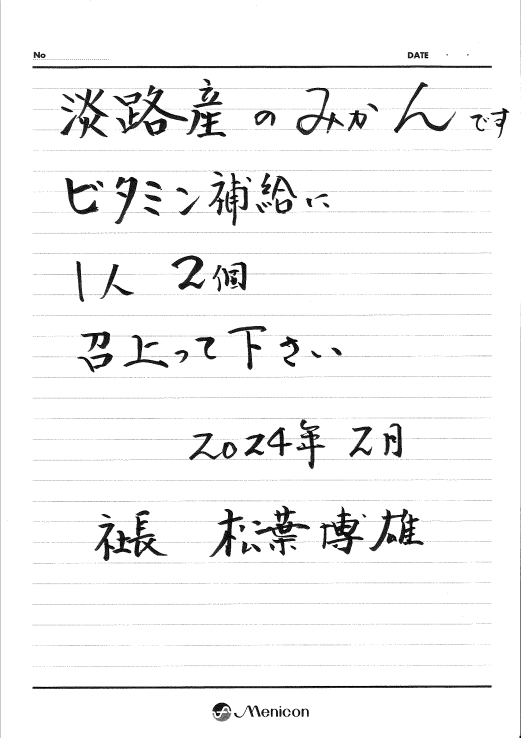 No
DATE ・ ・
淡路産のみかんです
ビタミン補給に
1人 2個
召上って下さい
2024年 2月
社長 松葉博雄
Menicon